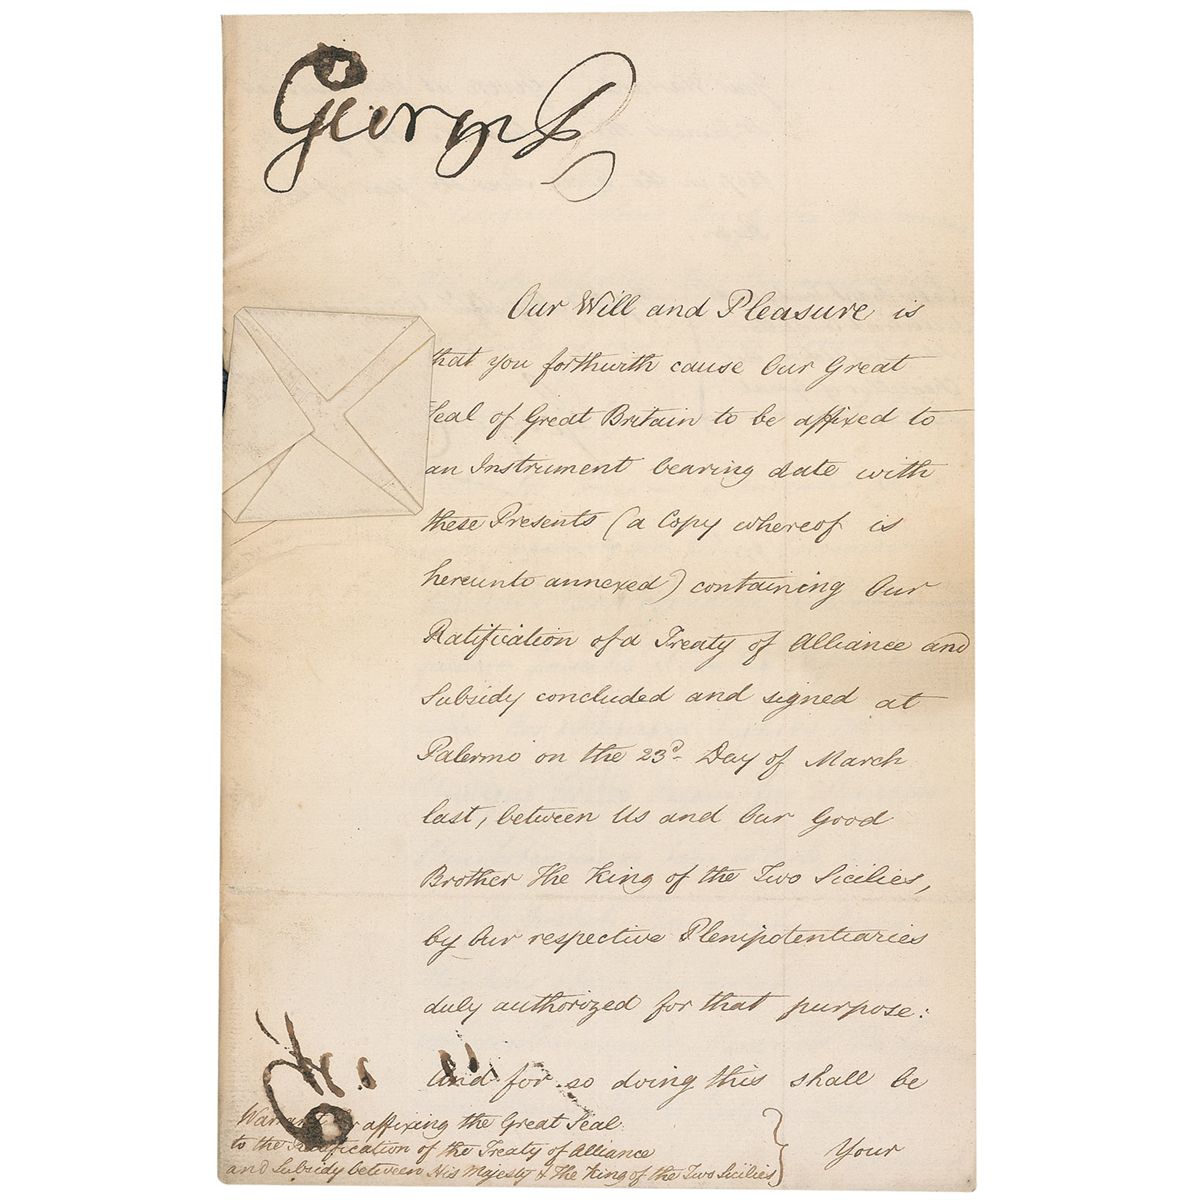 George R
Our Will and Pleasure is
that you forthwith cause Our Great
Seal of Great Britain to be affixed to
an Instrument bearing date with
these Presents (a Copy whereof is
hereunto annexed) containing Our
Ratification of a Treaty of Alliance and
Subsidy concluded and signed at
Palermo on the 23d Day of March
last, between Us and Our Good
Brother The King of the Two Sicilies,
by Our respective Plenipotentiaries
duly authorized for that purpose:
And for so doing this shall be
Warrant for affixing the Great Seal
to the Ratification of the Treaty of Alliance
and Subsidy between His Majesty & The King of the Two Sicilies
Your